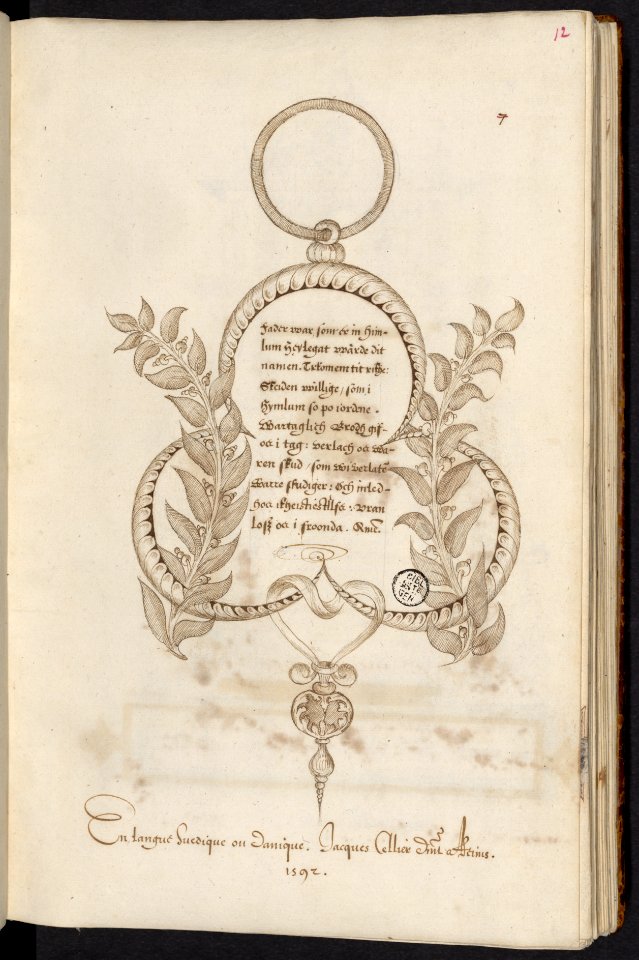 12
7
Fader war som er in him-
lum Heylegat wårde dit
namen. Tilkomem tit rike:
Skeiden willige, som i
Hymlum so po iordne.
Wartaglich Brodh gif-
os i tag: verlach os wa-
ren skud, som wi verlate
Warre skudiger: Och inled-
hos ikhei
Losz os i froonda. Ame.
BIEL
GEN
En langue Suedique ou Danique. Jacques Cellier dmt a Reims.
1592.